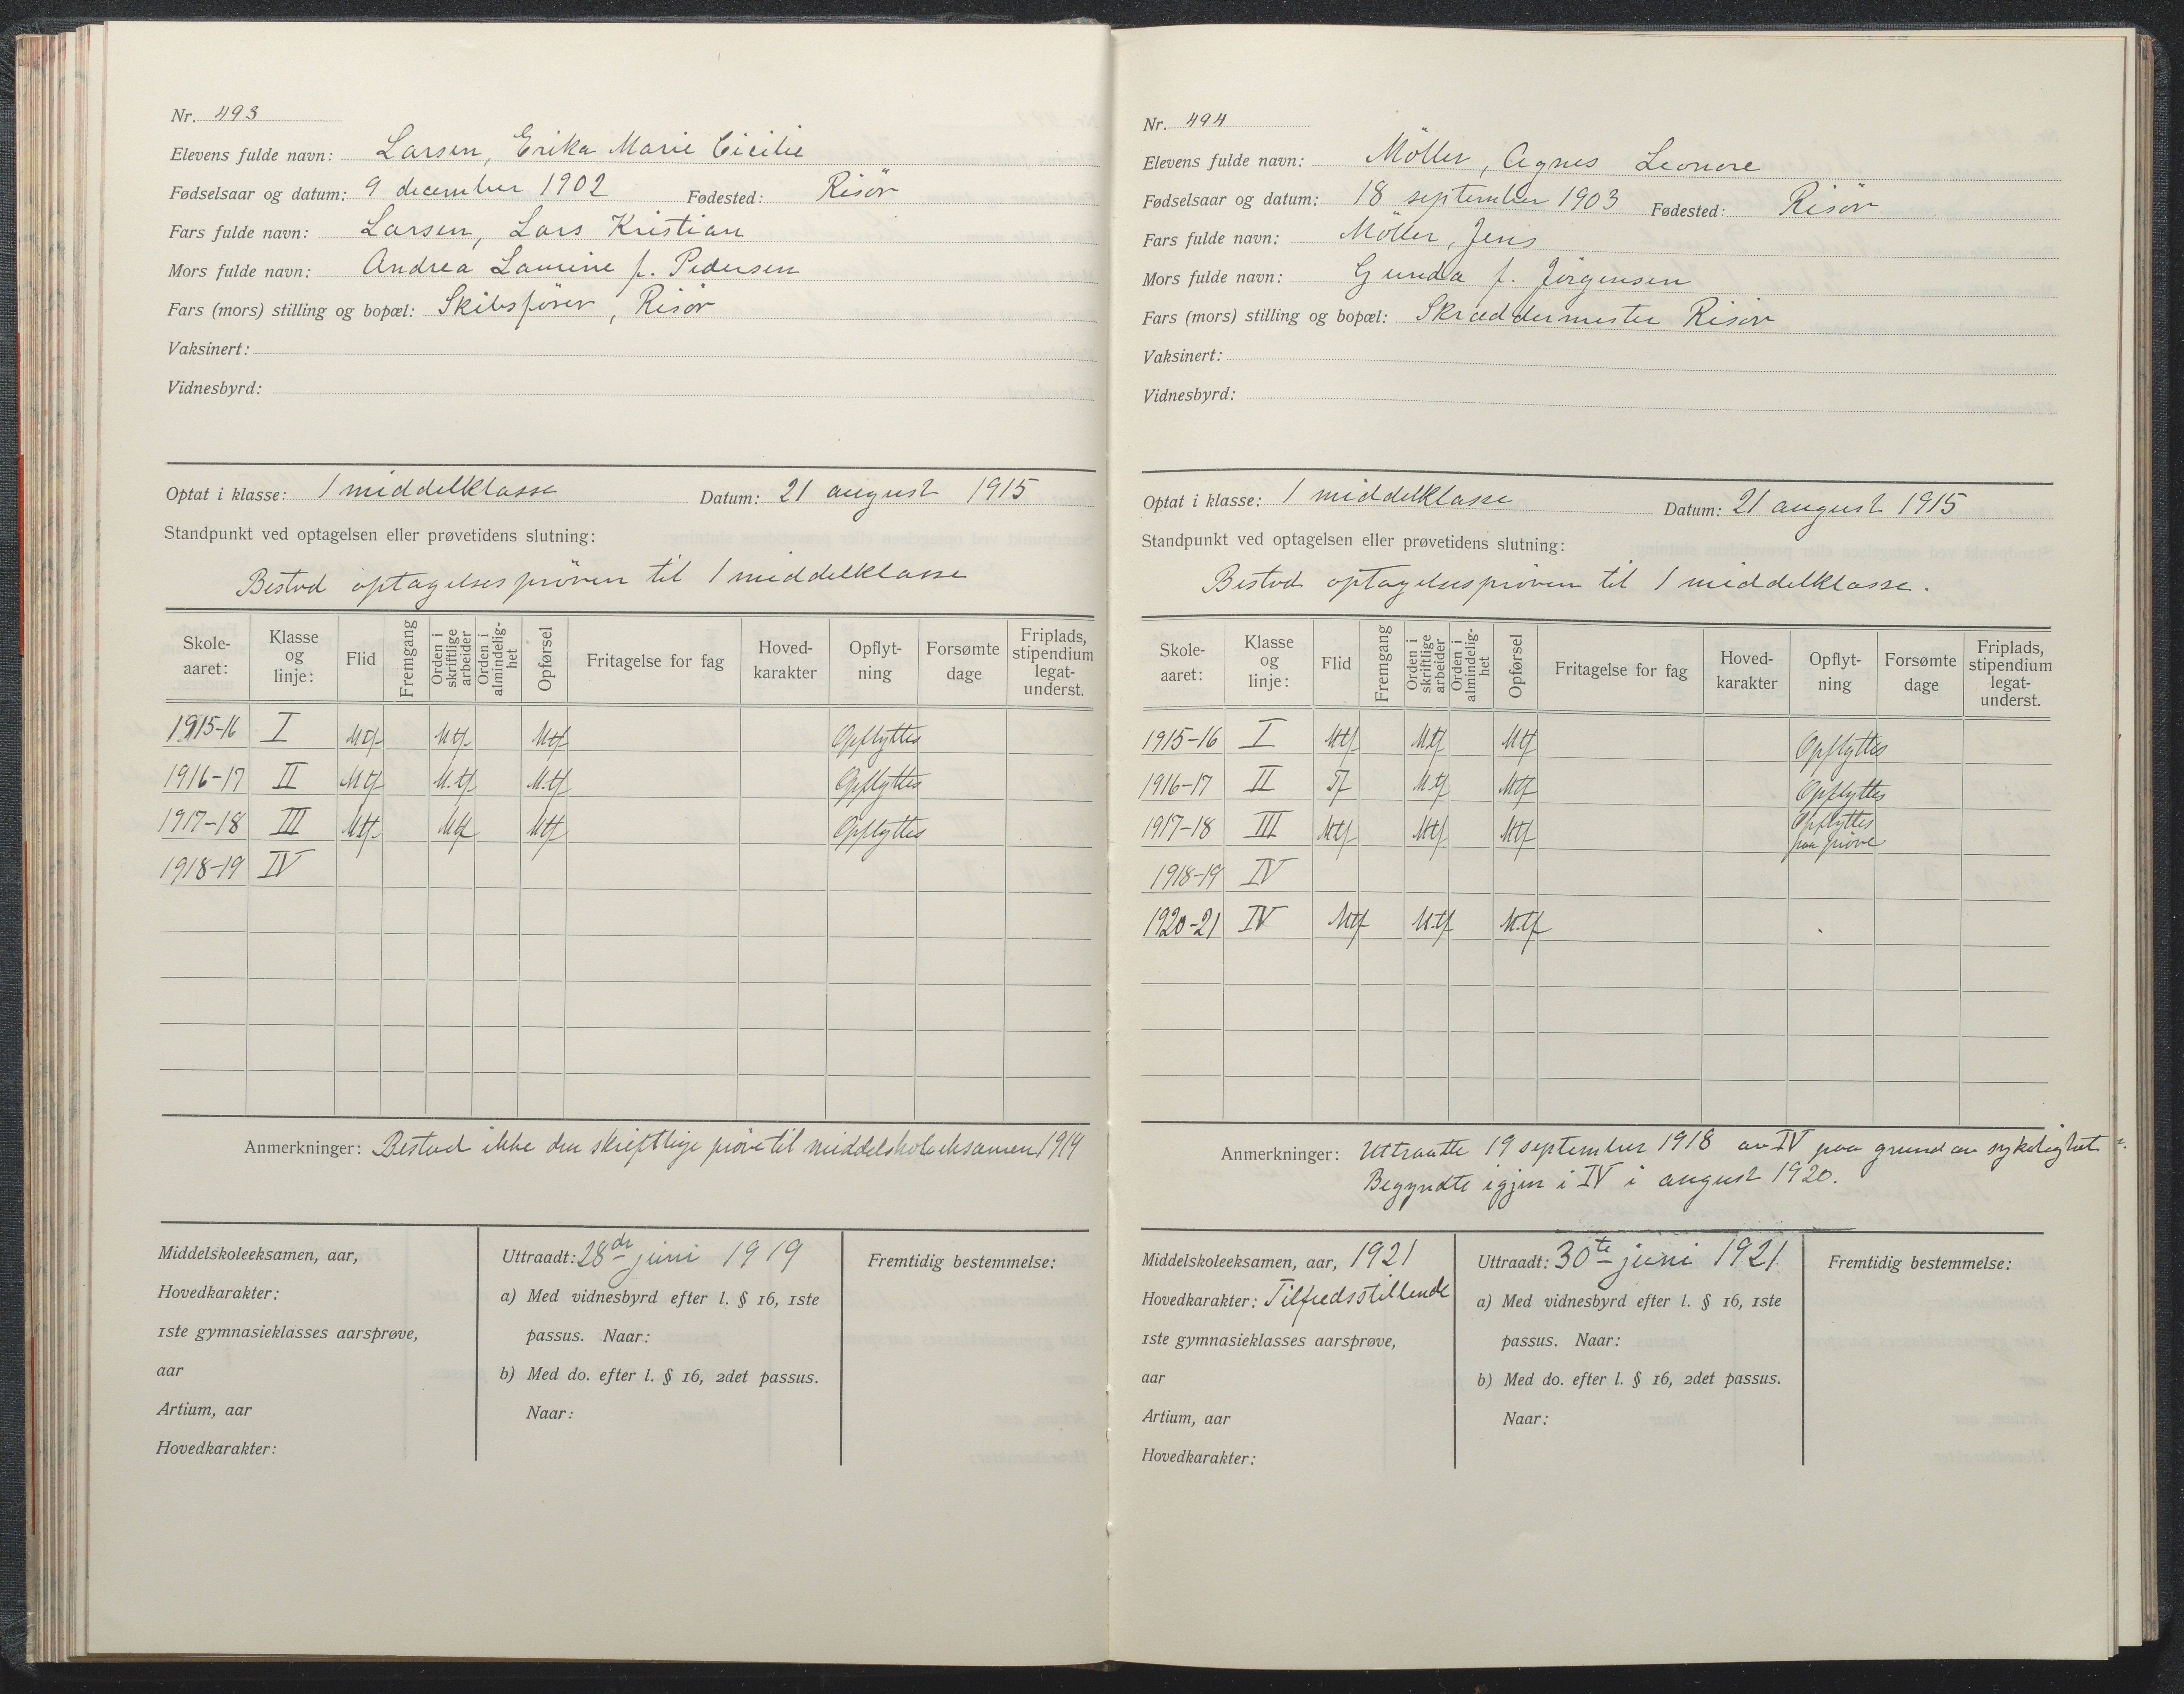 Nr. 493
Elevens fulde navn: Larsen, Erika Marie Cicilie
Fødselsaar og datum: 9 december 1902 Fødested: Risör
Fars fulde navn: Larsen, Lars Kristian
Mors fulde navn: Andrea Laurine f. Pedersen
Fars (mors) stilling og bopæl: Skibsförer, Risör
Vaksinert:
Vidnesbyrd:
Optat i klasse: 1 middelklasse Datum: 21 august 1915
Standpunkt ved optagelsen eller prøvetidens slutning:
Bestod optagelsespröven til 1 middelklasse
Skole-aaret: Klasse og linje: Flid Fremgang Orden i skriftlige arbeider Orden i almindelig-het Opførsel Fritagelse for fag Hoved-karakter Opflyt-ning Forsømte dage Friplads, stipendium legat-underst.
1915-16 I Mtf Mtf Mtf Opflyttes
1916-17 II Mtf M.tf M.tf Opflyttes
1917-18 III Mtf Mtf Mtf Opflyttes
1918-19 IV
Anmerkninger: Bestod ikke den skriftlige pröve til middelskoleeksamen 1919
Middelskoleeksamen, aar,
Hovedkarakter:
1ste gymnasieklasses aarsprøve,
aar
Artium, aar
Hovedkarakter:
Uttraadt: 28de juni 1919
a) Med vidnesbyrd efter l. § 16, 1ste
passus. Naar:
b) Med do. efter l. § 16, 2det passus.
Naar:
Fremtidig bestemmelse:
Nr. 494
Elevens fulde navn: Möller, Agnes Leonore
Fødselsaar og datum: 18 september 1903 Fødested: Risör
Fars fulde navn: Möller, Jens
Mors fulde navn: Gunda f. Jörgensen
Fars (mors) stilling og bopæl: Skræddermester Risör
Vaksinert:
Vidnesbyrd:
Optat i klasse: 1 middelklasse Datum: 21 august 1915
Standpunkt ved optagelsen eller prøvetidens slutning:
Bestod optagelsespröven til 1 middelklasse.
Skole-aaret: Klasse og linje: Flid Fremgang Orden i skriftlige arbeider Orden i almindelig-het Opførsel Fritagelse for fag Hoved-karakter Opflyt-ning Forsømte dage Friplads, stipendium legat-underst.
1915-16 I Mtf Mtf Mtf Opflyttes
1916-17 II Tf M.tf Mtf Opflyttes
1917-18 III Mtf Mtf Mtf Opflyttes paa pröve
1918-19 IV
1920-21 IV Mtf M.tf M.tf
Anmerkninger: Uttraatte 19 september 1918 av IV paa grund av sykelighet.
Begyndte igjen i IV i august 1920.
Middelskoleeksamen, aar, 1921
Hovedkarakter: Tilfredsstillende
1ste gymnasieklasses aarsprøve,
aar
Artium, aar
Hovedkarakter:
Uttraadt: 30te juni 1921
a) Med vidnesbyrd efter l. § 16, 1ste
passus. Naar:
b) Med do. efter l. § 16, 2det passus.
Naar:
Fremtidig bestemmelse: